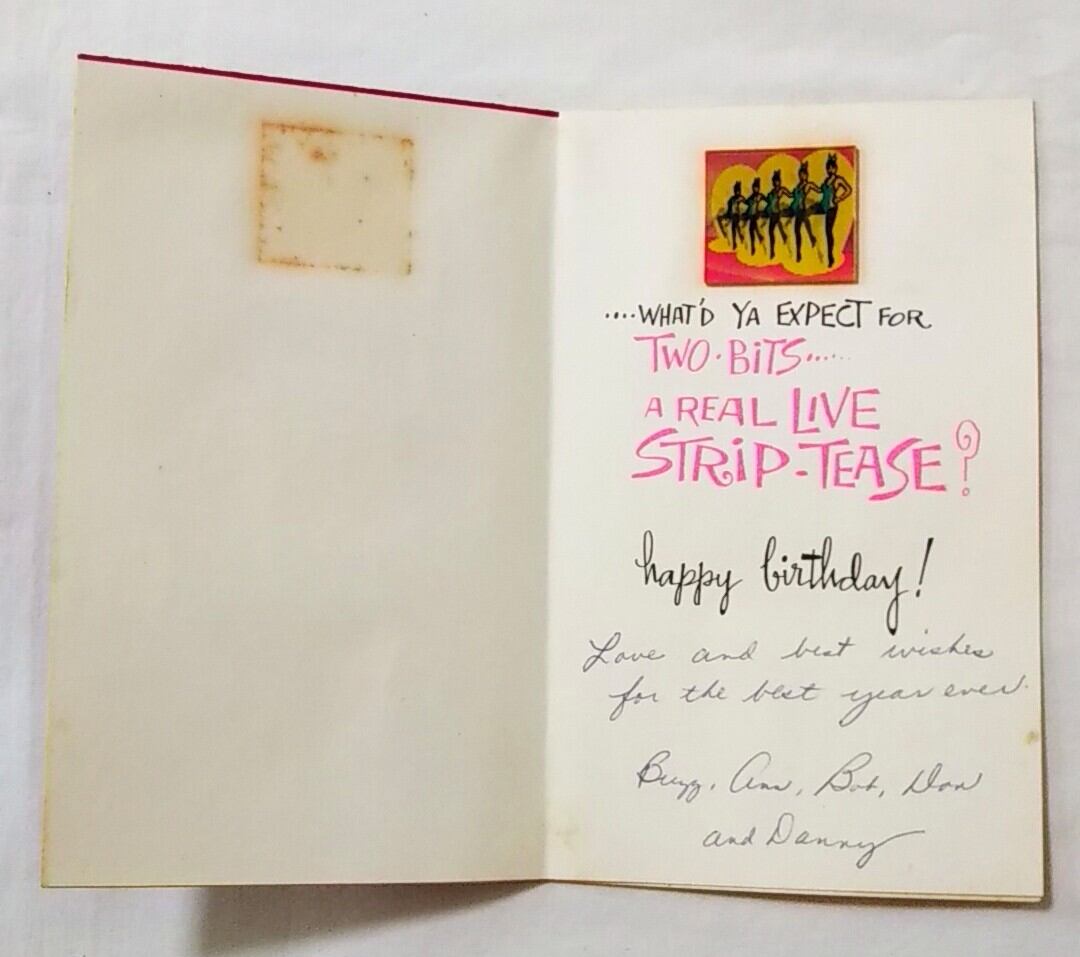 ....WHAT'D YA EXPECT FOR
TWO-BITS......
A REAL LIVE
STRIP-TEASE?
happy birthday!
Love and best wishes
for the best year ever.
Buzz, Ann, Bob, Don
and Danny